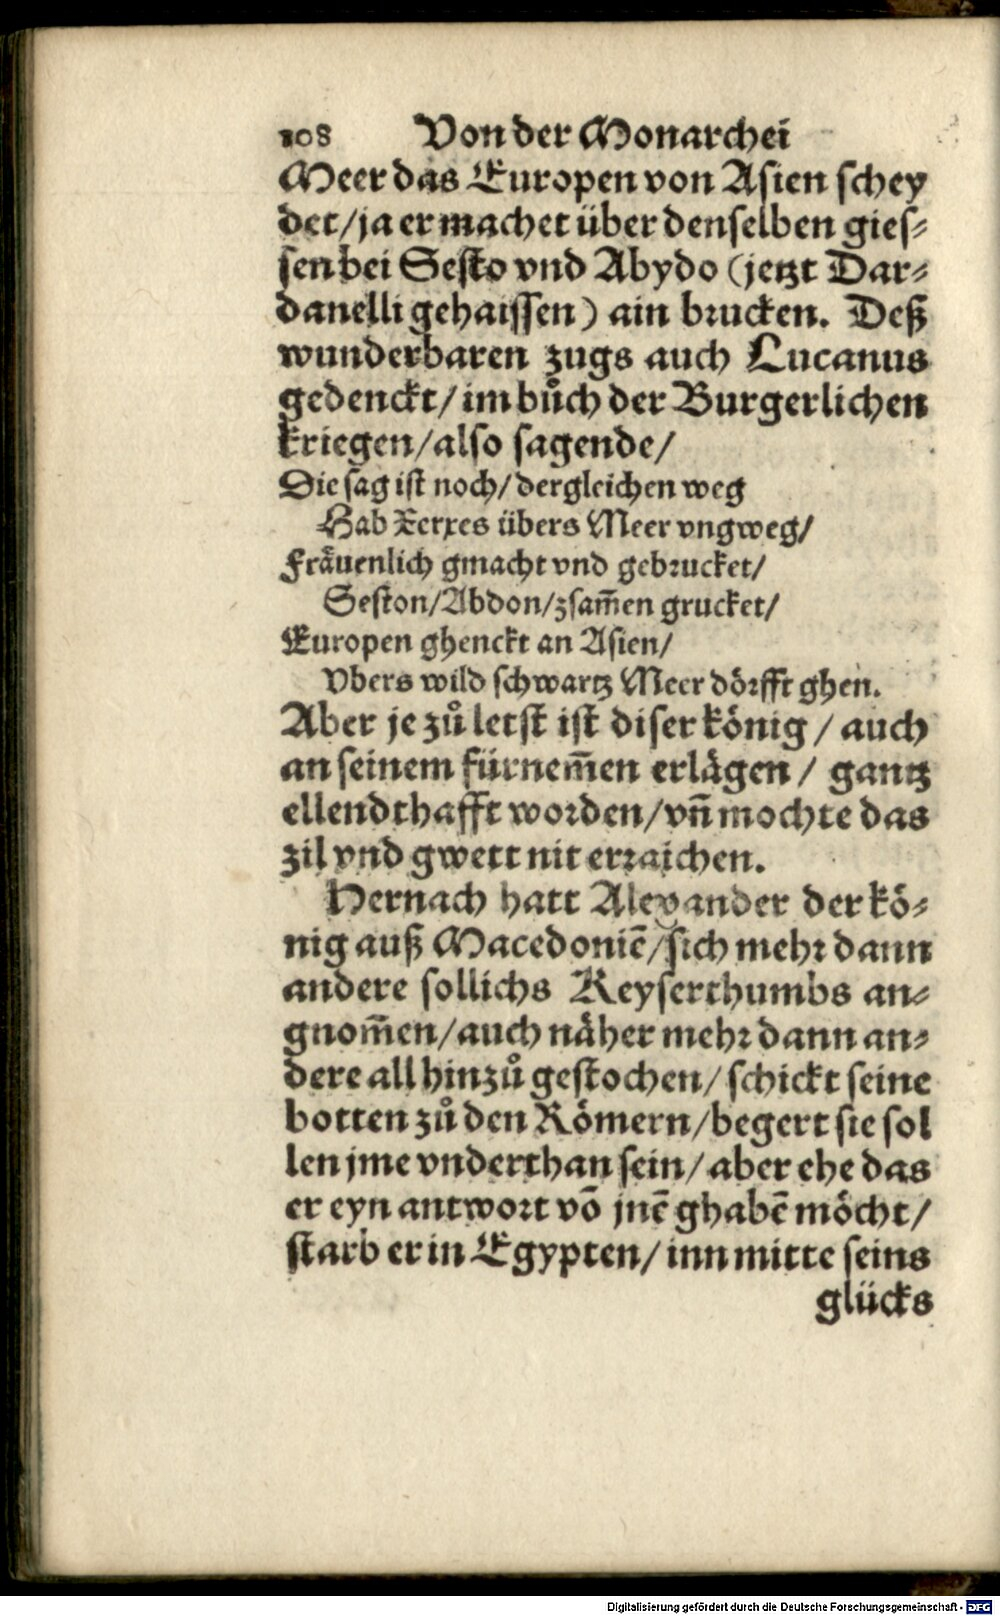 108 Von der Monarchei
Meer das Europen von Asien schey
det/ja er machet über denselben gies⸗
sen bei Sesto vnd Abydo (jetzt Dar⸗
danelli gehaissen) ain brucken. Deß
wunderbaren zugs auch Lucanus
gedenckt/im bůch der Burgerlichen
kriegen/also sagende/
Die sag ist noch/dergleichen weg
Hab Xerxes übers Meer vngweg/
Fräuenlich gmacht vnd gebrucket/
Seston/Abdon/zsam̄en grucket/
Europen ghenckt an Asien/
Vbers wild schwartz Meer dörfft ghen.
Aber je zů letst ist diser könig/auch
an seinem fürnem̄en erlägen/gantz
ellendthafft worden/vn̄ mochte das
zil vnd gwett nit erraichen.
Hernach hatt Alexander der kö⸗
nig auß Macedoniē/sich mehr dann
andere sollichs Keyserthumbs an⸗
gnom̄en/auch näher mehr dann an⸗
dere all hinzů gestochen/schickt seine
botten zů den Römern/begert sie sol
len jme vnderthan sein/aber ehe das
er eyn antwort vō jnē ghabē möcht/
starb er in Egypten/inn mitte seins
glücks
Digitalisierung gefördert durch die Deutsche Forschungsgemeinschaft - DFG